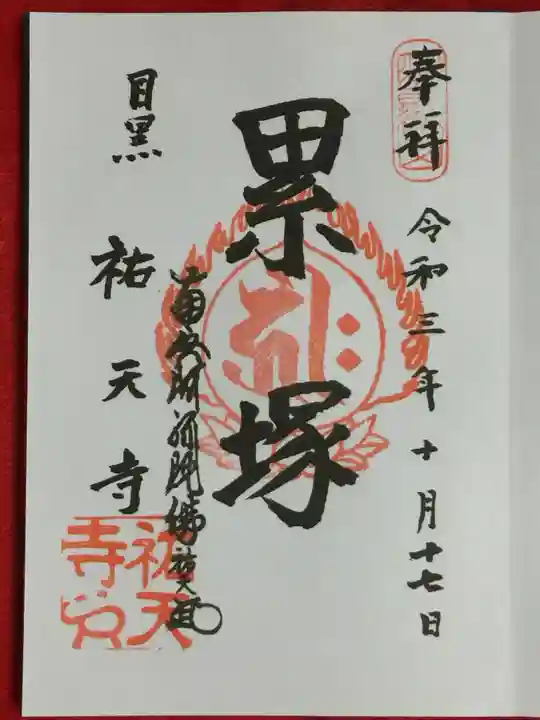 奉拝
令和三年十月十七日
累塚
南無阿弥陀佛祐天
目黒
祐天寺
祐天
寺